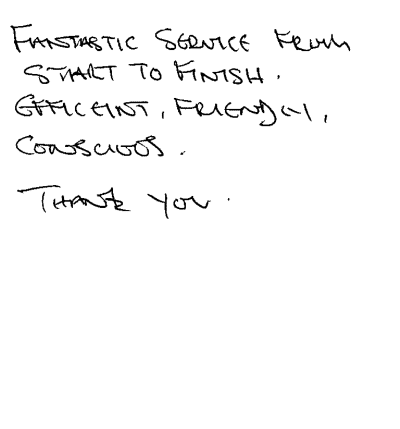 FANTASTIC SERVICE FROM
START TO FINISH.
EFFICEINT, FRIENDLY,
CONSCIOUS.
THANK YOU.